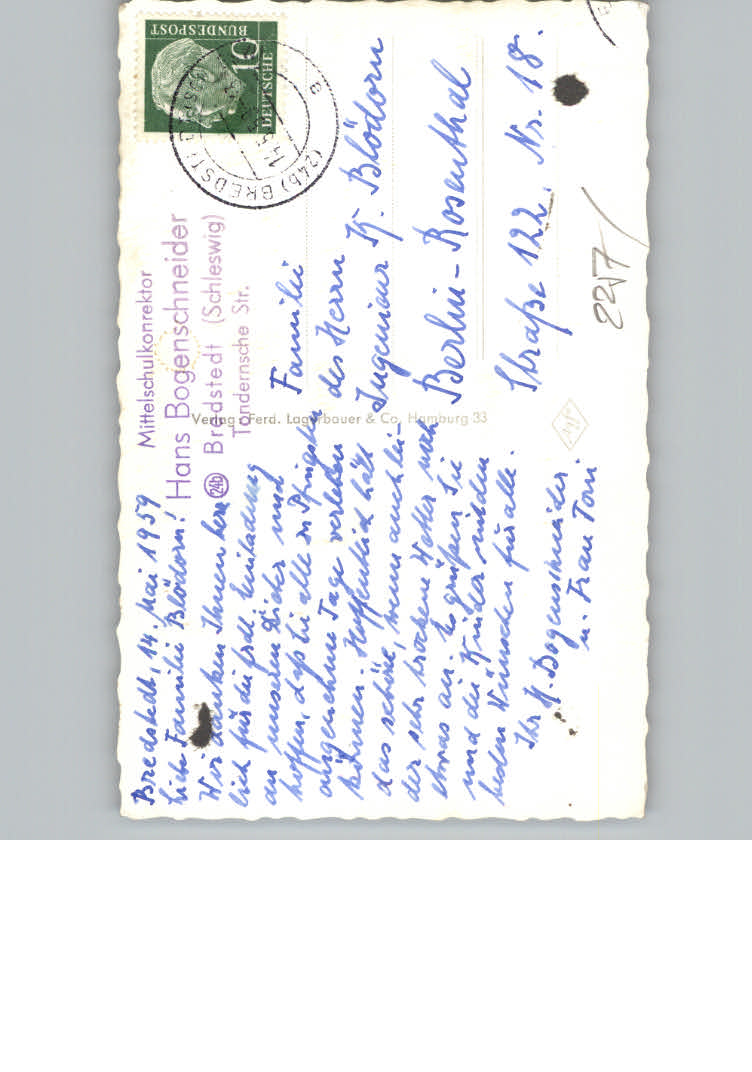 Bredstedt, 14. Mai 1959
Liebe Familie Blödorn!
Wir danken Ihnen herz
lich für die frdl. Einladung
an unseren Dieter und
hoffen, daß Sie alle zu Pfingsten
angenehme Tage verleben
können. Hoffentlich hält
das schöne, wenn auch lei-
der sehr trockene Wetter noch
etwas an. Es grüßen Sie
und die Kinder mit den
besten Wünschen für alle.
Ihr H. Bogenschneider.
u. Frau Toni.
Mittelschulkonrektor
Hans Bogenschneider
(24b) Bredstedt (Schleswig)
Tondernsche Str.
Verlag: Ferd. Lagerbauer & Co, Hamburg 33
Familie
des Herrn
Ingenieur K. Blödorn
Berlin-Rosenthal
Straße 122, Nr. 18.
DEUTSCHE
BUNDESPOST
10
(24b) BREDSTEDT
a
2217
Agfa